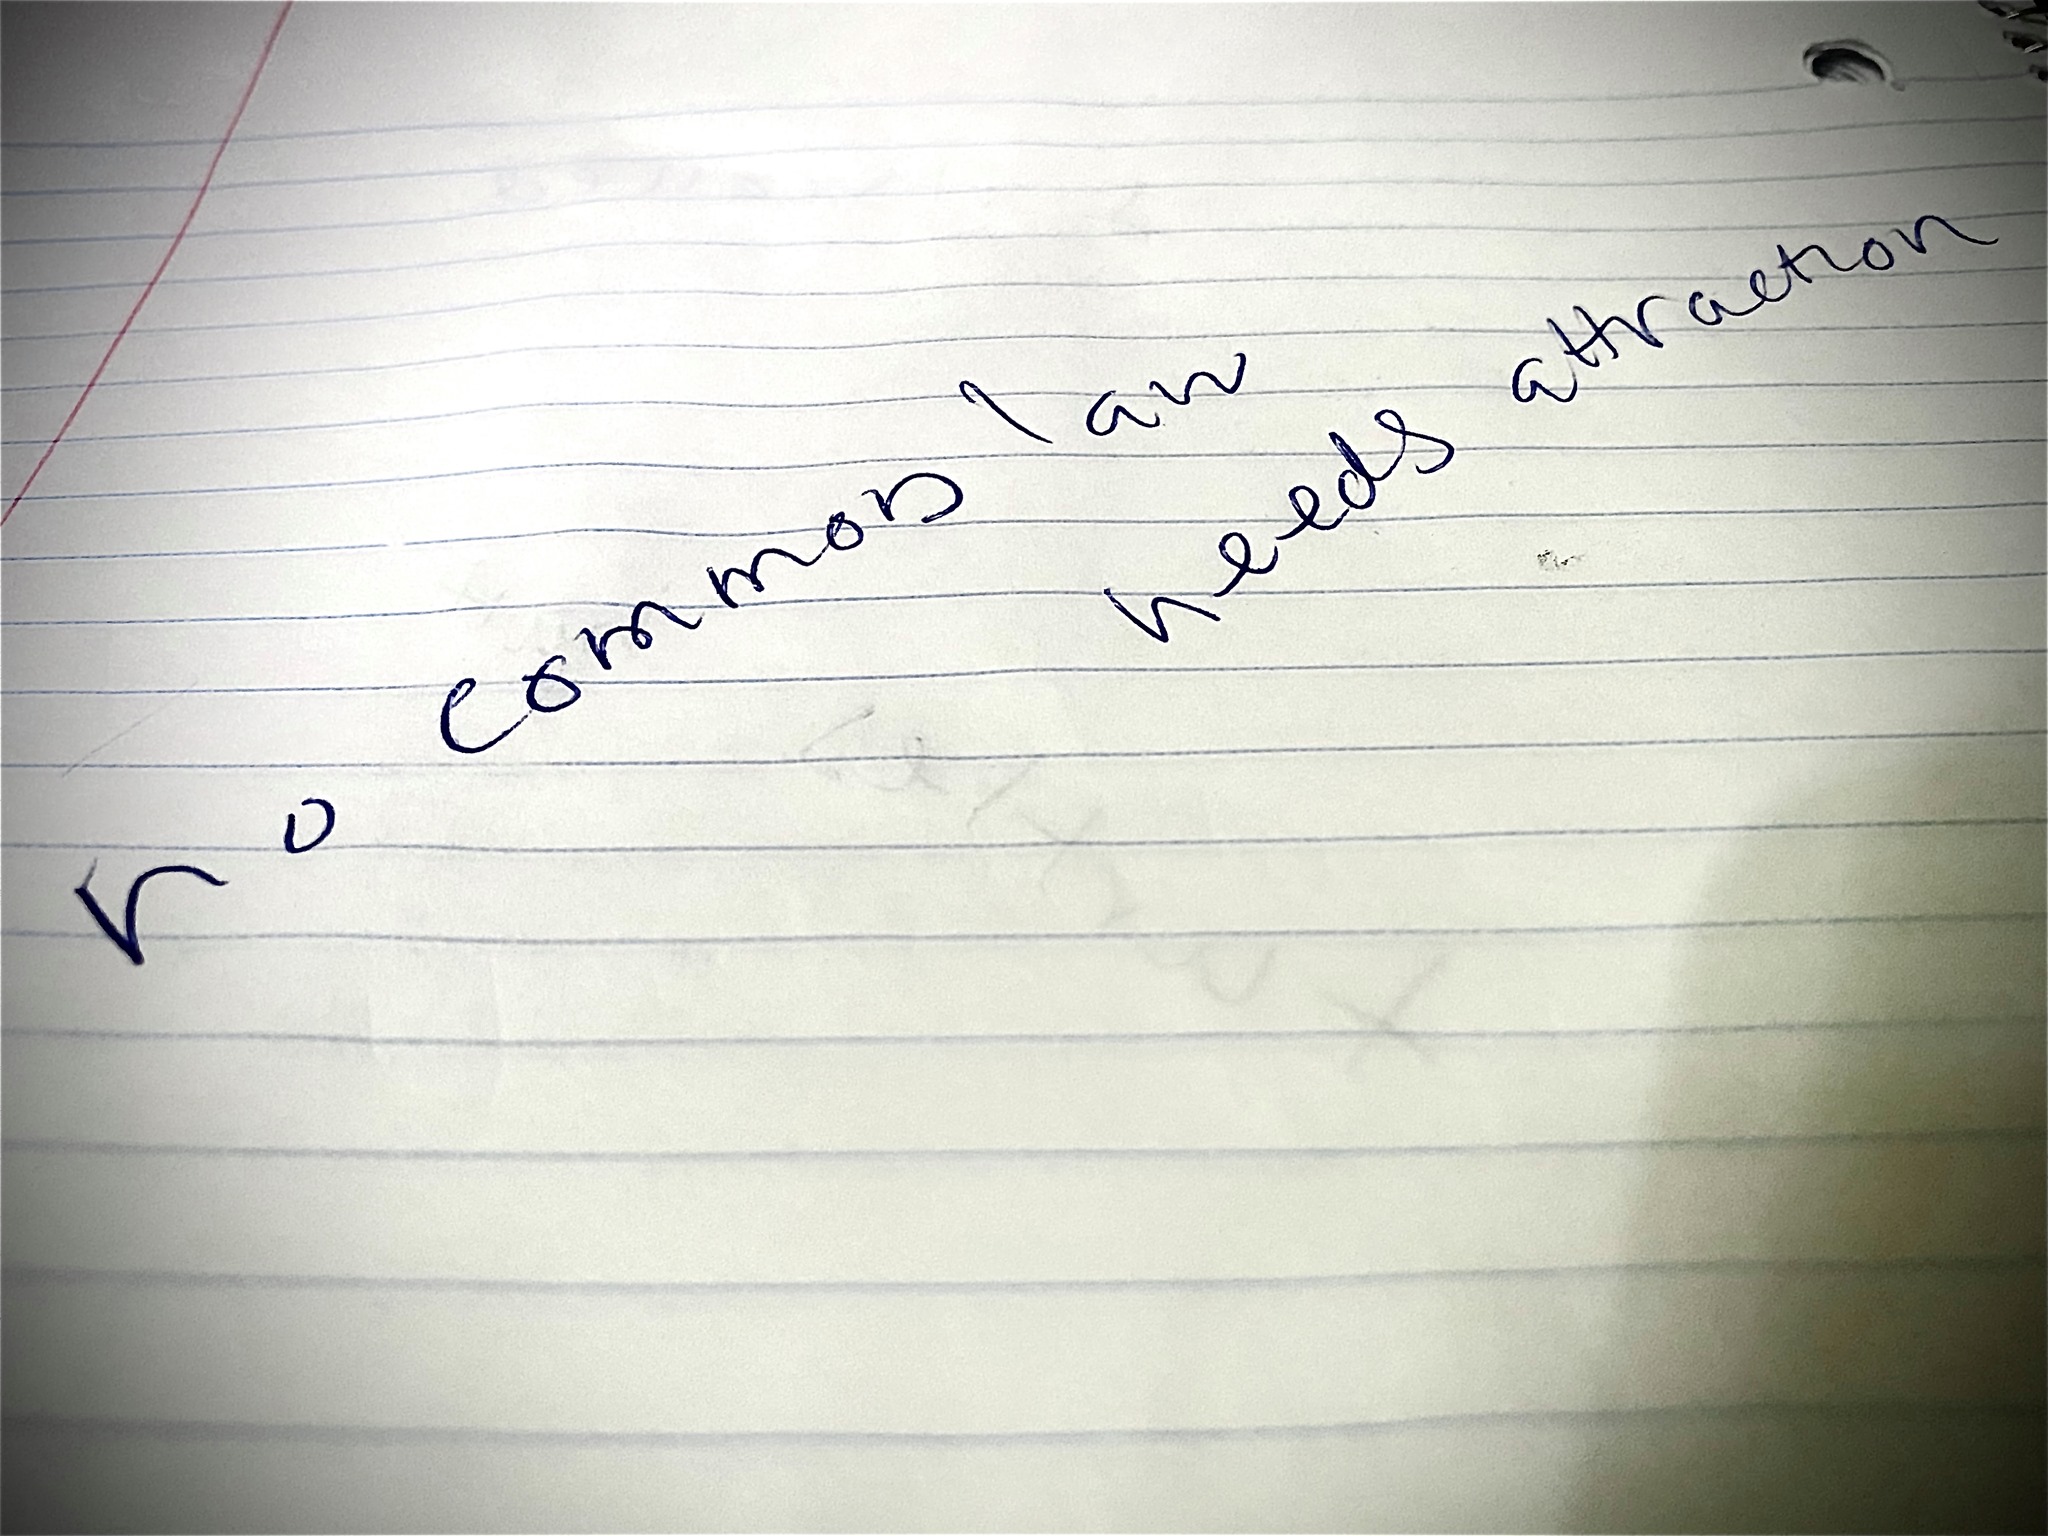 no common law
needs attraction